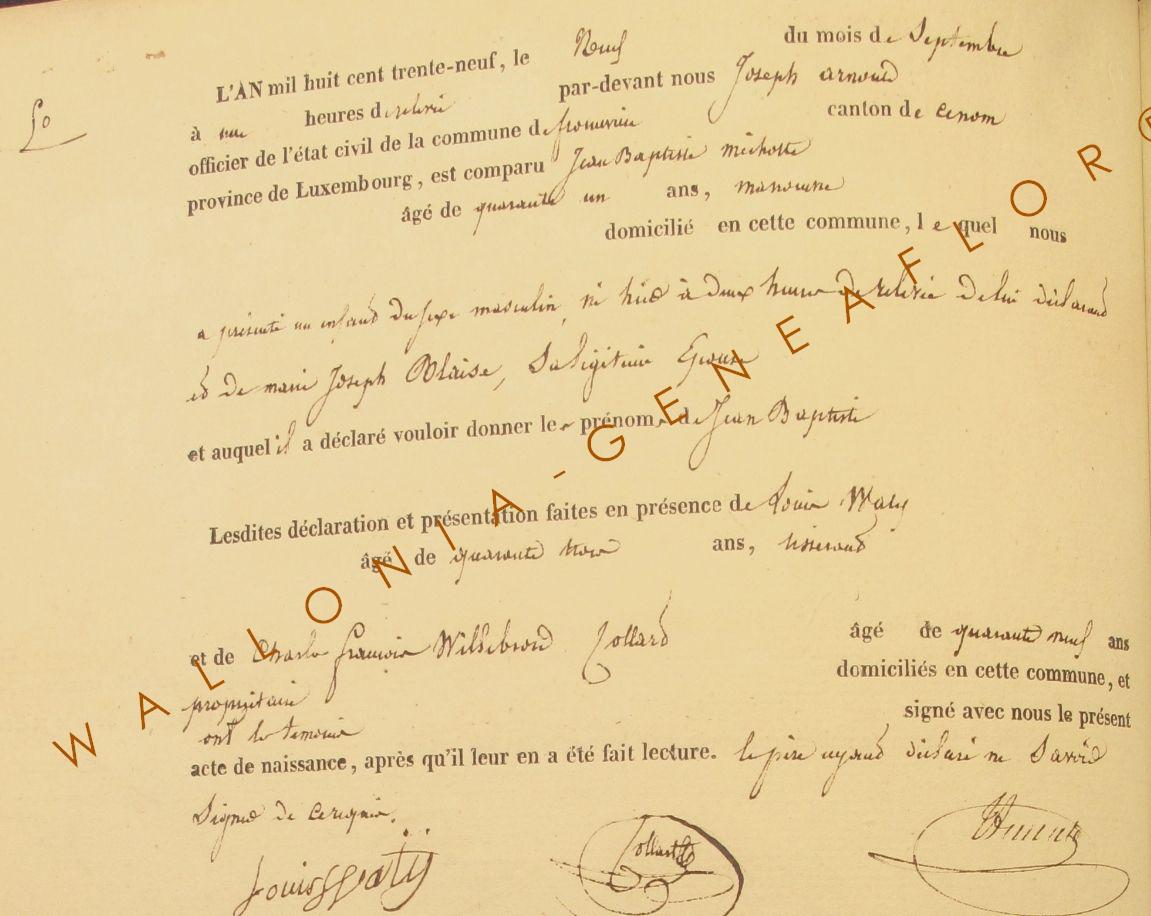 50
L'AN mil huit cent trente-neuf, le Neuf du mois de Septembre
à une heures de relevée par-devant nous Joseph arnould
officier de l'état civil de la commune de canton de
province de Luxembourg, est comparu Jean Baptiste michotte
âgé de quarante un ans, manouvrie
domicilié en cette commune, le quel nous
a présenté un enfand du sexe masculin, né hier à deux heures de relevée de lui déclarand
et de marie Joseph Blaise, Sa légitime Epouse
et auquel il a déclaré vouloir donner les prénoms de Jean Baptiste
Lesdites déclaration et présentation faites en présence de Louis Waty
âgé de quarante trois ans, tisserand
et de Charles françois Willebrord Collard âgé de quarante neuf ans
propriétaire domiciliés en cette commune, et
ont les temoins signé avec nous le présent
acte de naissance, après qu'il leur en a été fait lecture. le père ayand déclaré ne Savoir
Signer de ce requis.
Louis Waty Collard
WALLONIA-GENEAFLOR®